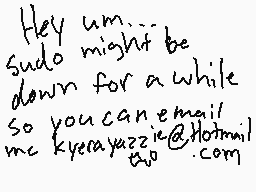 Hey um...
sudo might be
down for a while
so you can email
me kyerayazzie@Hotmail
.com